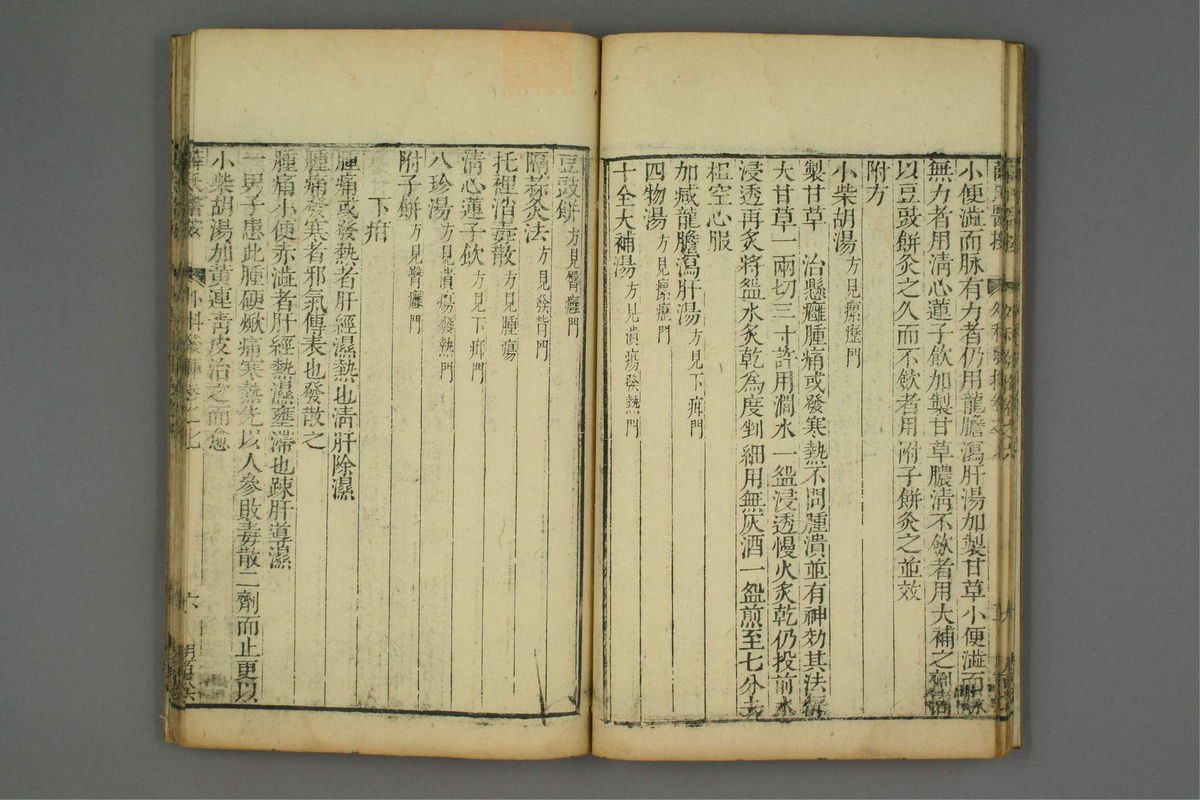 小便澁而脉有力者仍用龍膽瀉肝湯加製甘草小便澁而脉
無力者用清心蓮子飲加製甘草膿清不斂者用大補之劑
以豆豉餅灸之久而不飲者用附子餅灸之並效
附方
小柴胡湯方見瘰癧門
製甘草 治懸癰腫痛或發寒熱不問腫潰並有神効其法每
大甘草一兩切三寸許用澗水一盌浸透慢火炙乾仍投前水
浸透再炙將盌水炙乾為度剉細用無灰酒一盌煎至七分去
柤空心服
加减龍膽瀉肝湯方見下疳門
四物湯方見瘰癧門
十全大補湯方見潰瘍發熱門
豆豉餅方見臀癰門
隔蒜灸法方見發背門
托裡消毒散方見腫瘍
清心蓮子飲方見下疳門
八珍湯方見潰瘍發熱門
附子餅方見臀癰門
下疳
腫痛或發熱者肝經濕熱也清肝除濕
腫痛發寒者邪氣傳表也發散之
腫痛小便赤澁者肝經熱濕壅滯也疎肝導濕
一男子患此腫硬焮痛寒熱先以人參敗毒散二劑而止更以
小柴胡湯加黃連青皮治之而愈
薛氏醫案 外科 卷之七 六